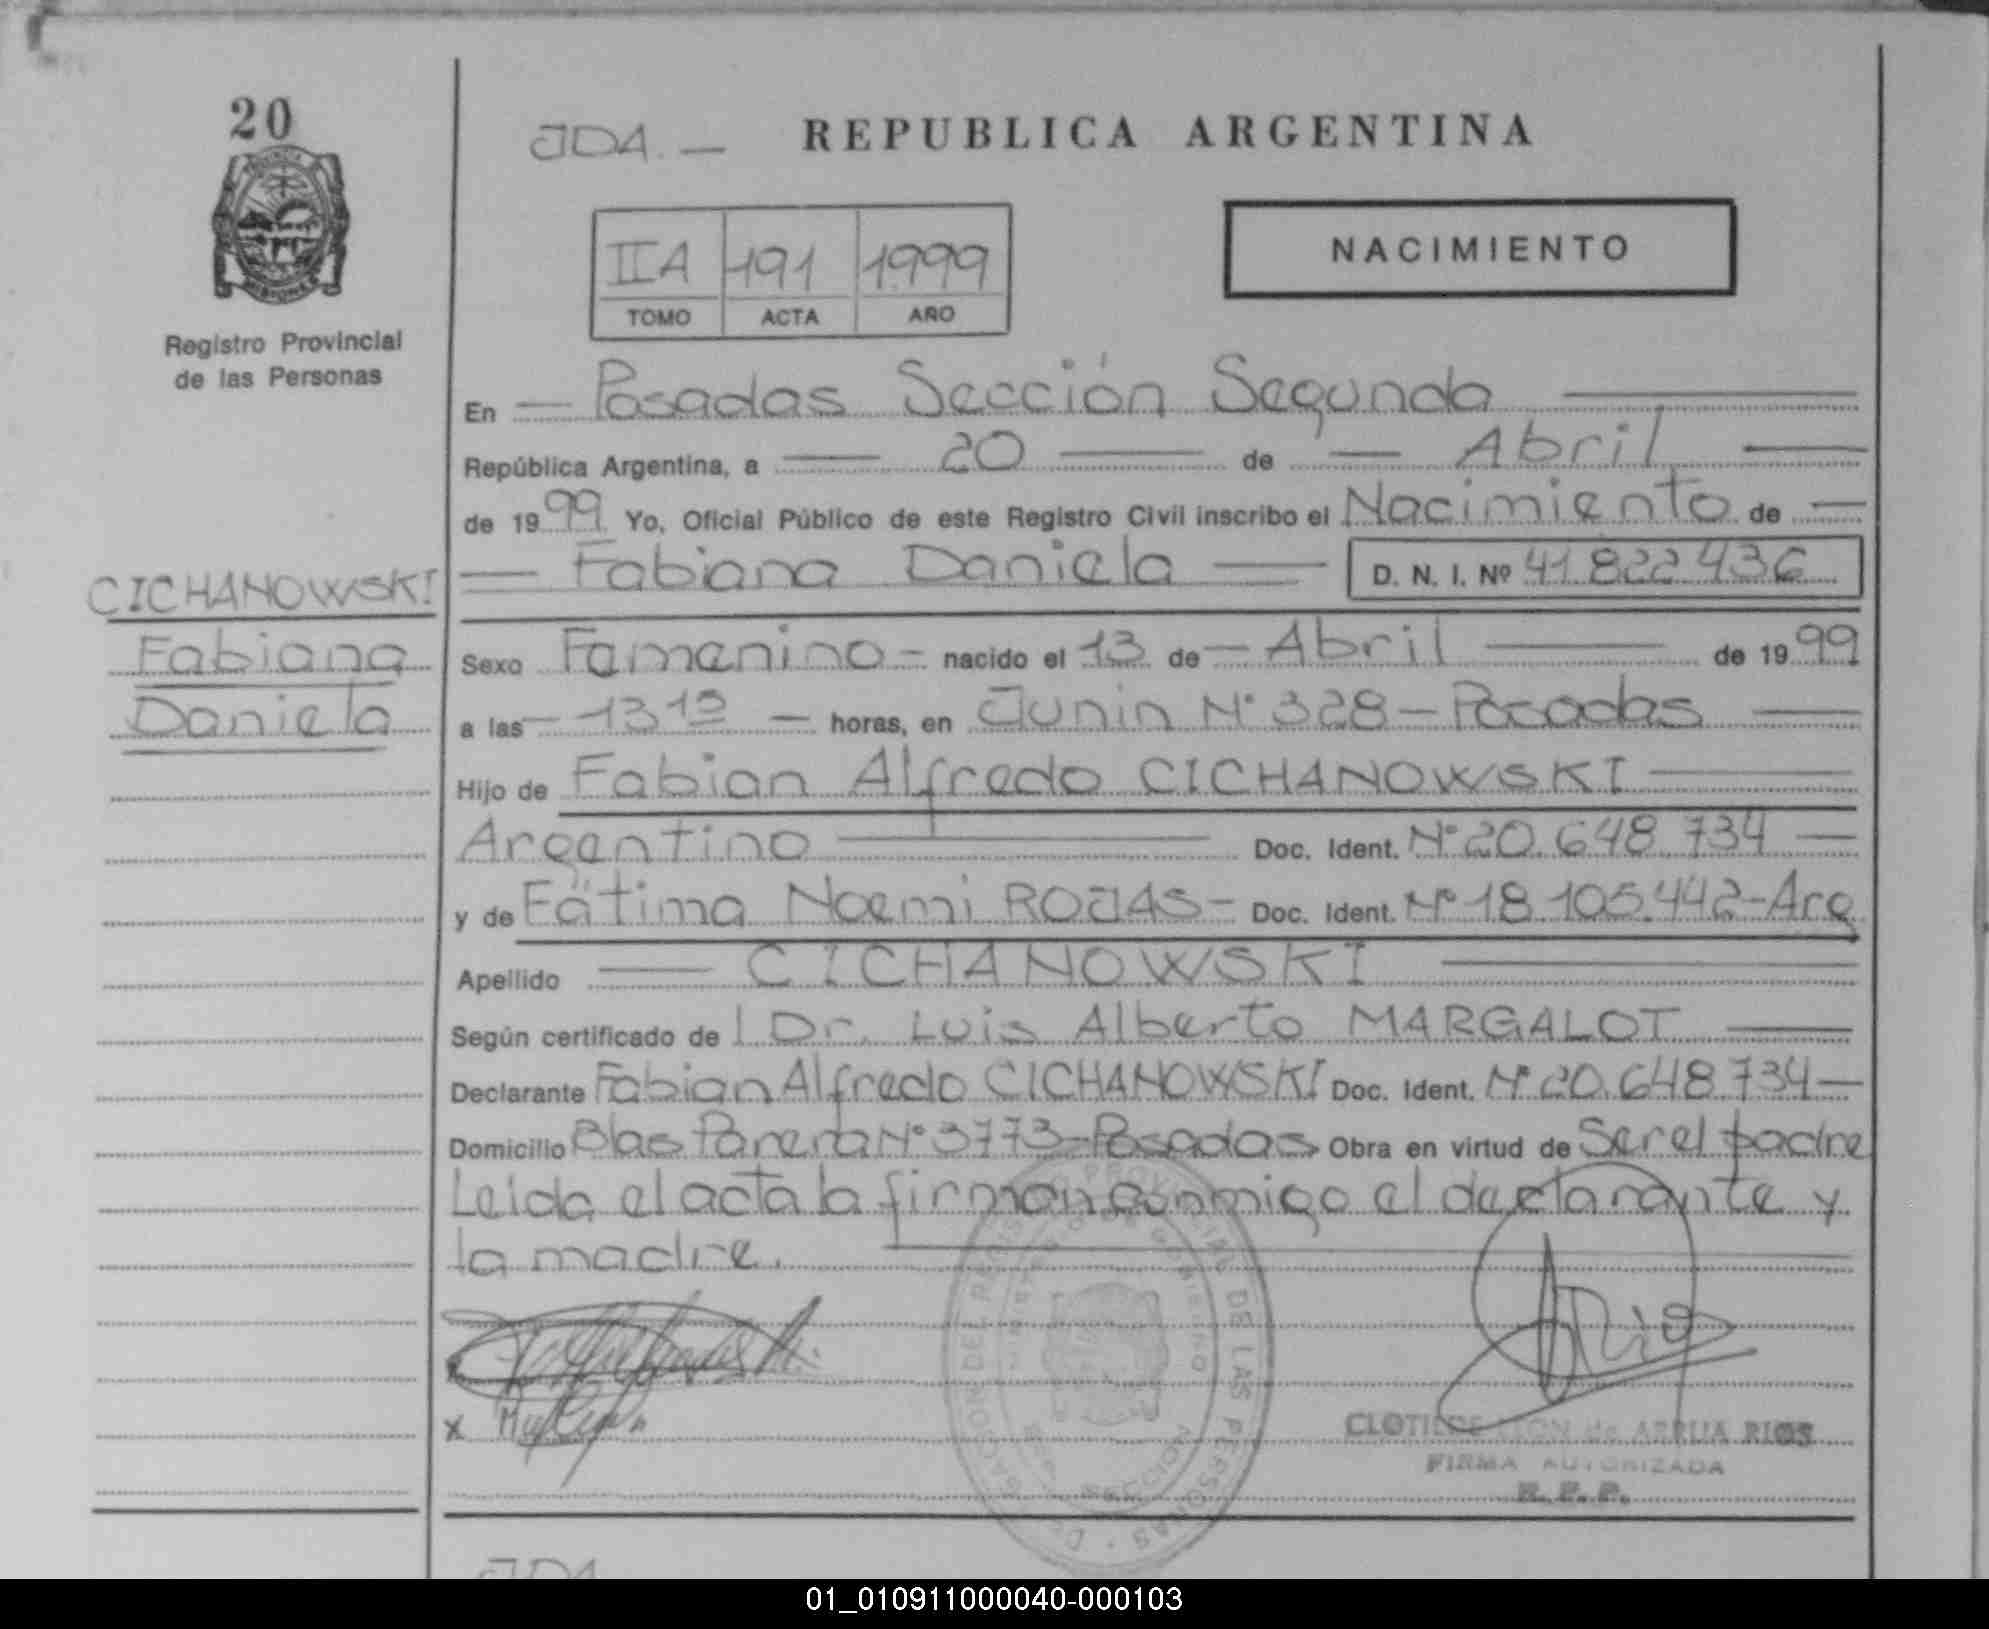 20
JDA. — REPUBLICA ARGENTINA
PROVINCIA
MISIONES
IIA 191 1999
TOMO ACTA AÑO
NACIMIENTO
Registro Provincial
de las Personas
En — Posadas Sección Segunda —
República Argentina, a — 20 — de — Abril —
de 1999 Yo, Oficial Público de este Registro Civil inscribo el Nacimiento de —
— Fabiana Daniela — D. N. I. Nº 41.822.436
CICHANOWSKI
Fabiana
Daniela
Sexo Femenino - nacido el 13 de — Abril — de 1999
a las — 13 10 — horas, en Junin Nº 328 - Posadas —
Hijo de Fabian Alfredo CICHANOWSKI —
Argentino — Doc. Ident. Nº 20.648.734 —
y de Fátima Noemi ROJAS - Doc. Ident. Nº 18.105.442-Arg
Apellido — CICHANOWSKI —
Según certificado de Dr. Luis Alberto MARGALOT —
Declarante Fabian Alfredo CICHANOWSKI Doc. Ident. Nº 20.648.734 —
Domicilio Blas Parera Nº 3773-Posadas Obra en virtud de Ser el padre
Leida el acta la firman conmigo el declarante y
la madre.
DEL REGISTRO PROVINCIAL DE LAS PERSONAS
x
CLOTILDE de ARRUA RIOS
FIRMA AUTORIZADA
R. P. P.
JDA
01_010911000040-000103